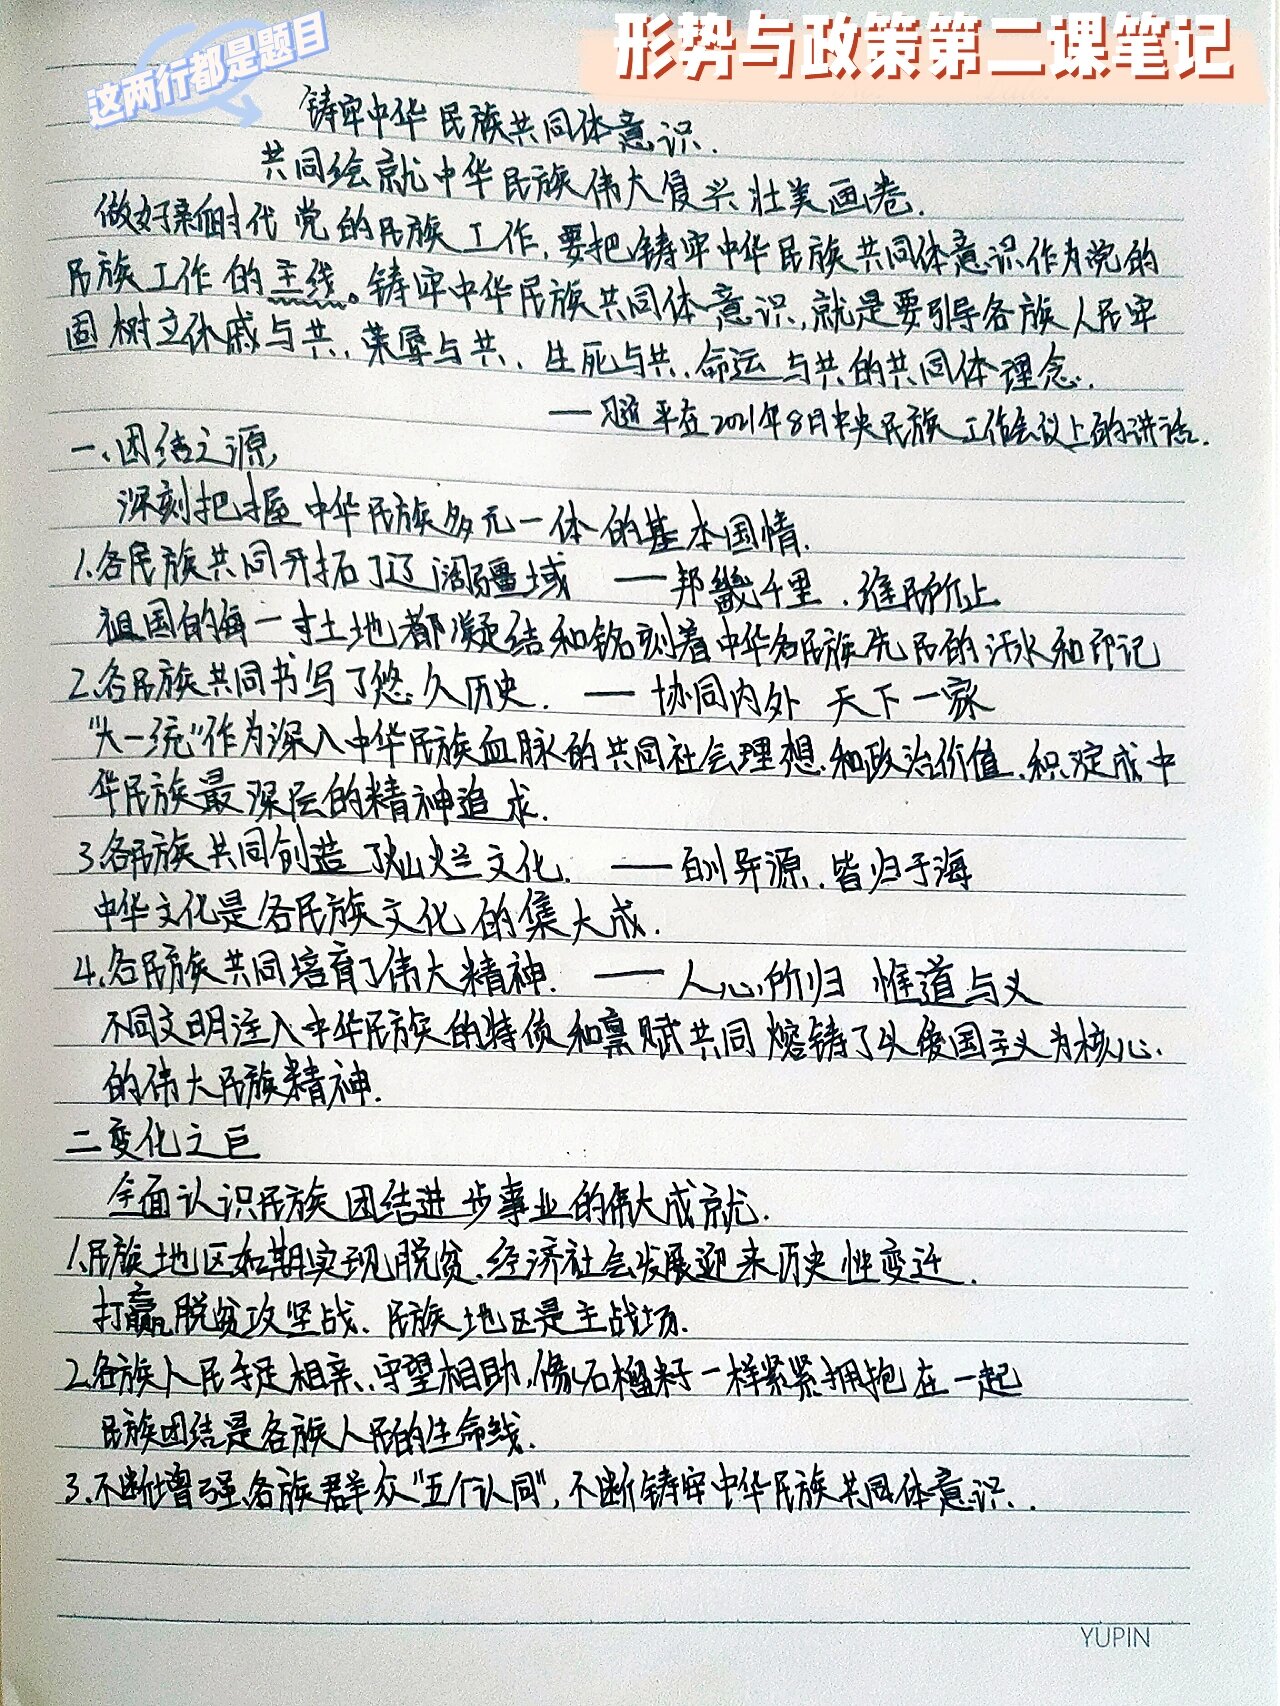 形势与政策第二课笔记
这两行都是题目
铸牢中华民族共同体意识.
共同绘就中华民族伟大复兴壮美画卷.
做好新时代党的民族工作,要把铸牢中华民族共同体意识作为党的
民族工作的主线。铸牢中华民族共同体意识,就是要引导各族人民牢
固树立休戚与共、荣辱与共、生死与共、命运与共的共同体理念.
——习近平在2021年8月中央民族工作会议上的讲话.
一、团结之源
深刻把握中华民族多元一体的基本国情.
1.各民族共同开拓了辽阔疆域 ——邦畿千里,维民所止
祖国的每一寸土地都凝结和铭刻着中华各民族先民的汗水和印记
2.各民族共同书写了悠久历史. —— 协同内外 天下一家
"大一统"作为深入中华民族血脉的共同社会理想和政治价值,积淀成中
华民族最深层的精神追求.
3.各民族共同创造了灿烂文化. ——百川异源,皆归于海
中华文化是各民族文化的集大成.
4.各民族共同培育了伟大精神. ——人心所归 惟道与义
不同文明注入中华民族的特质和禀赋共同熔铸了以爱国主义为核心
的伟大民族精神.
二变化之巨
全面认识民族团结进步事业的伟大成就.
1.民族地区如期实现脱贫、经济社会发展迎来历史性变迁.
打赢脱贫攻坚战、民族地区是主战场.
2.各族人民手足相亲、守望相助,像石榴籽一样紧紧拥抱在一起
民族团结是各族人民的生命线.
3.不断增强各族群众"五个认同",不断铸牢中华民族共同体意识.
YUPIN